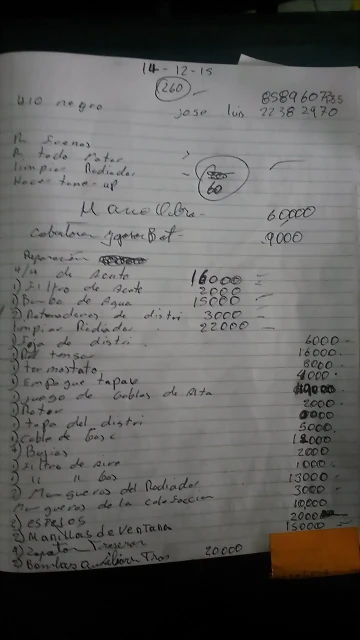 14-12-15
260
410 negro
85896075
jose luis 22382970
A frenos
A todo Motor
limpiar Radiador
Hacer tune-up
60
Mano Obra - 60,000
9000
Reparación
4/4 de Aceite 16000
1) Filtro de Aceite 2000
1) Bomba de Agua 15000
2) Retenedores de distri 3000
limpiar Radiador 22000
1) Faja de distri. 6000
1) Rol tensor 16000
1) termostato 8000
1) Empaque tapa 4000
1) juego de cables de Alta
1) Rotor 2000
1) tapa del distri
1) Cable de 5000
4) Bujias
1) Filtro de aire 2000
1) " " Gas 1000
2) Mangueras del Radiador 13000
Mangueras de la calefaccion 3000
2) espejos 10,000
2) Manillas de ventana 2000
4) Zapatas Traseras 15000
2) Bombas auxiliares Tras 20000